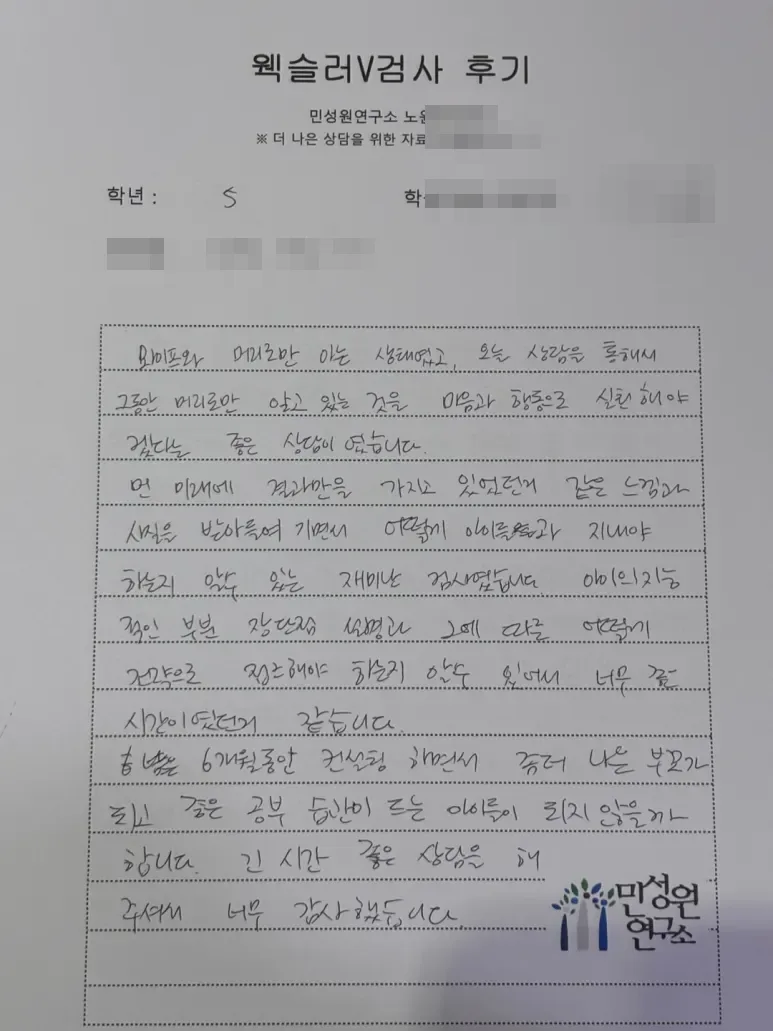 웩슬러V검사 후기
민성원연구소 노원
※ 더 나은 상담을 위한 자료
학년 : 5
학
와이프와 머리로만 아는 상태였고, 오늘 상담을 통해서
그동안 머리로만 알고 있는 것을 마음과 행동으로 실천해야
겠다는 좋은 상담이 였습니다.
먼 미래에 결과만을 가지고 있었던거 같은 느낌과
사실을 받아들여 기면서 어떻게 아이들과 지내야
하는지 알수 있는 재미난 검사였습니다. 아이의지능
적인 부분 장단점 설명과 그에 따른 어떻게
전략으로 접근해야 하는지 알수 있어서 너무 좋은
시간이였던거 같습니다.
남은 6개월동안 컨설팅 하면서 좀더 나은 부모가
되고 좋은 공부 습관이 드는 아이들이 되지 않을까
합니다. 긴 시간 좋은 상담을 해
주셔서 너무 감사했습니다.
민성원
연구소